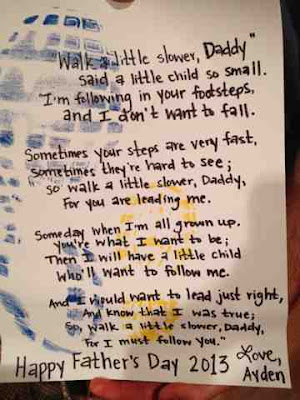 "Walk a little slower, Daddy"
said a little child so small.
"I'm following in your footsteps,
and I don't want to fall.
Sometimes your steps are very fast,
sometimes they're hard to see;
so walk a little slower, Daddy,
For you are leading me.
Someday when I'm all grown up.
You're what I want to be;
Then I will have a little child
Who'll want to follow me.
And I would want to lead just right,
And know that I was true;
So, walk a little slower, Daddy,
For I must follow you."
Happy Father's Day 2013 Love,
Ayden